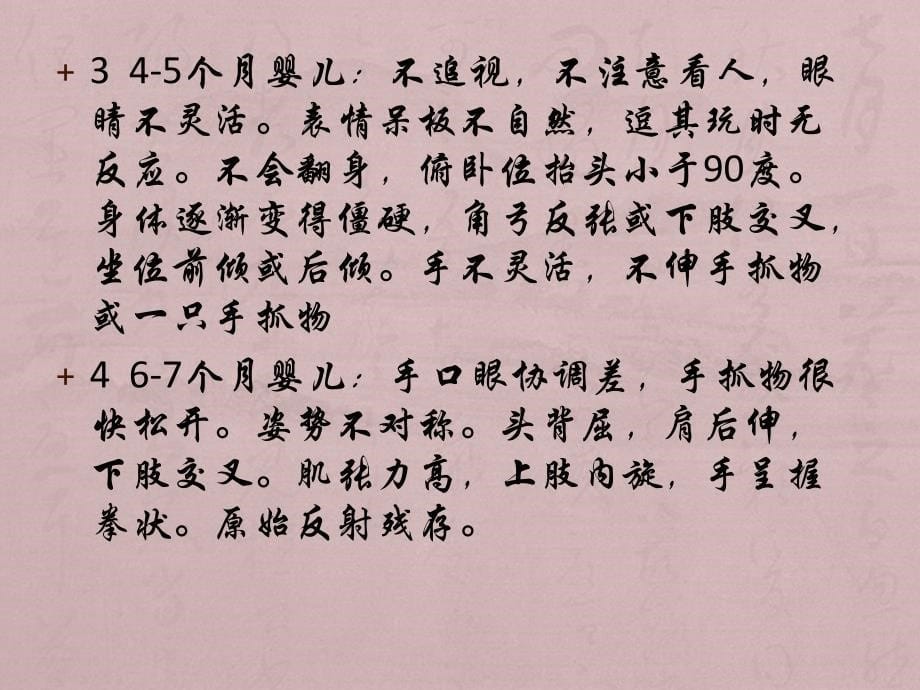 + 3 4-5个月婴儿：不追视，不注意看人，眼
睛不灵活。表情呆板不自然，逗其玩时无
反应。不会翻身，俯卧位抬头小于90度。
身体逐渐变得僵硬，角弓反张或下肢交叉，
坐位前倾或后倾。手不灵活，不伸手抓物
或一只手抓物
+ 4 6-7个月婴儿：手口眼协调差，手抓物很
快松开。姿势不对称。头背屈，肩后伸，
下肢交叉。肌张力高，上肢内旋，手呈握
拳状。原始反射残存。